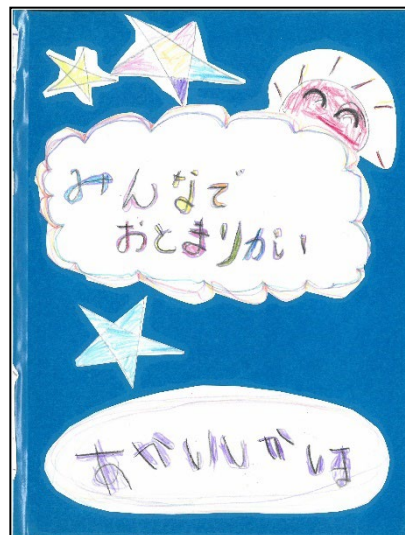 みんなで
おとまりかい
あかいしかほ